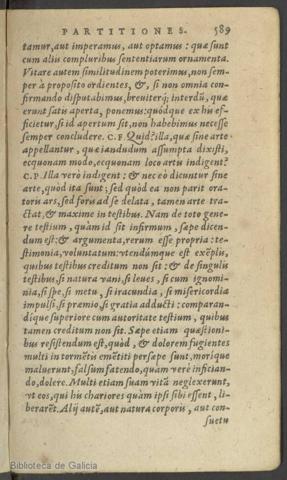 PARTITIONES. 589
tamur, aut imperamus, aut optamus: quæ sunt
cum aliis compluribus sententiarum ornamenta.
Vitare autem similitudinem poterimus, non sem-
per à proposito ordientes, &, si non omnia con-
firmando disputabimus, breviterq́; interdū, quæ
erunt satis aperta, ponemus: quódque ex his ef-
ficietur, si id apertum sit, non habebimus necesse
semper concludere. C.F. Quid? illa, quæ sine arte
appellantur, quæ iandudum assumpta dixisti,
ecquonam modo, ecquonam loco artis indigent?
C.P. Illa verò indigent: & nec eò dicuntur sine
arte, quòd ita sunt; sed quòd ea non parit ora-
toris ars, sed foris ad se delata, tamen arte tra-
ctat, & maxime in testibus. Nam de toto gene-
re testium, quàm id sit infirmum, sæpe dicen-
dum est: & argumenta, rerum esse propria: te-
stimonia, voluntatum: vtendúmque est exēplis,
quibus testibus creditum non sit: & de singulis
testibus, si natura vani, si leues, si cum ignomi-
nia, si spe, si metu, si iracundia, si misericordia
impulsi, si præmio, si gratia adducti: comparan-
díque superiore cum autoritate testium, quibus
tamen creditum non sit. Sæpe etiam quæstioni-
bus resistendum est, quòd, & dolorem fugientes
multi in tormētis emētiti persæpe sunt, morique
maluerunt, falsum fatendo, quàm verè infician-
do, dolere. Multi etiam suam vitā neglexerunt,
vt eos, qui his chariores quàm ipsi sibi essent, li-
berarēt. Alij autē, aut natura corporis, aut con-
suetu
Biblioteca de Galicia